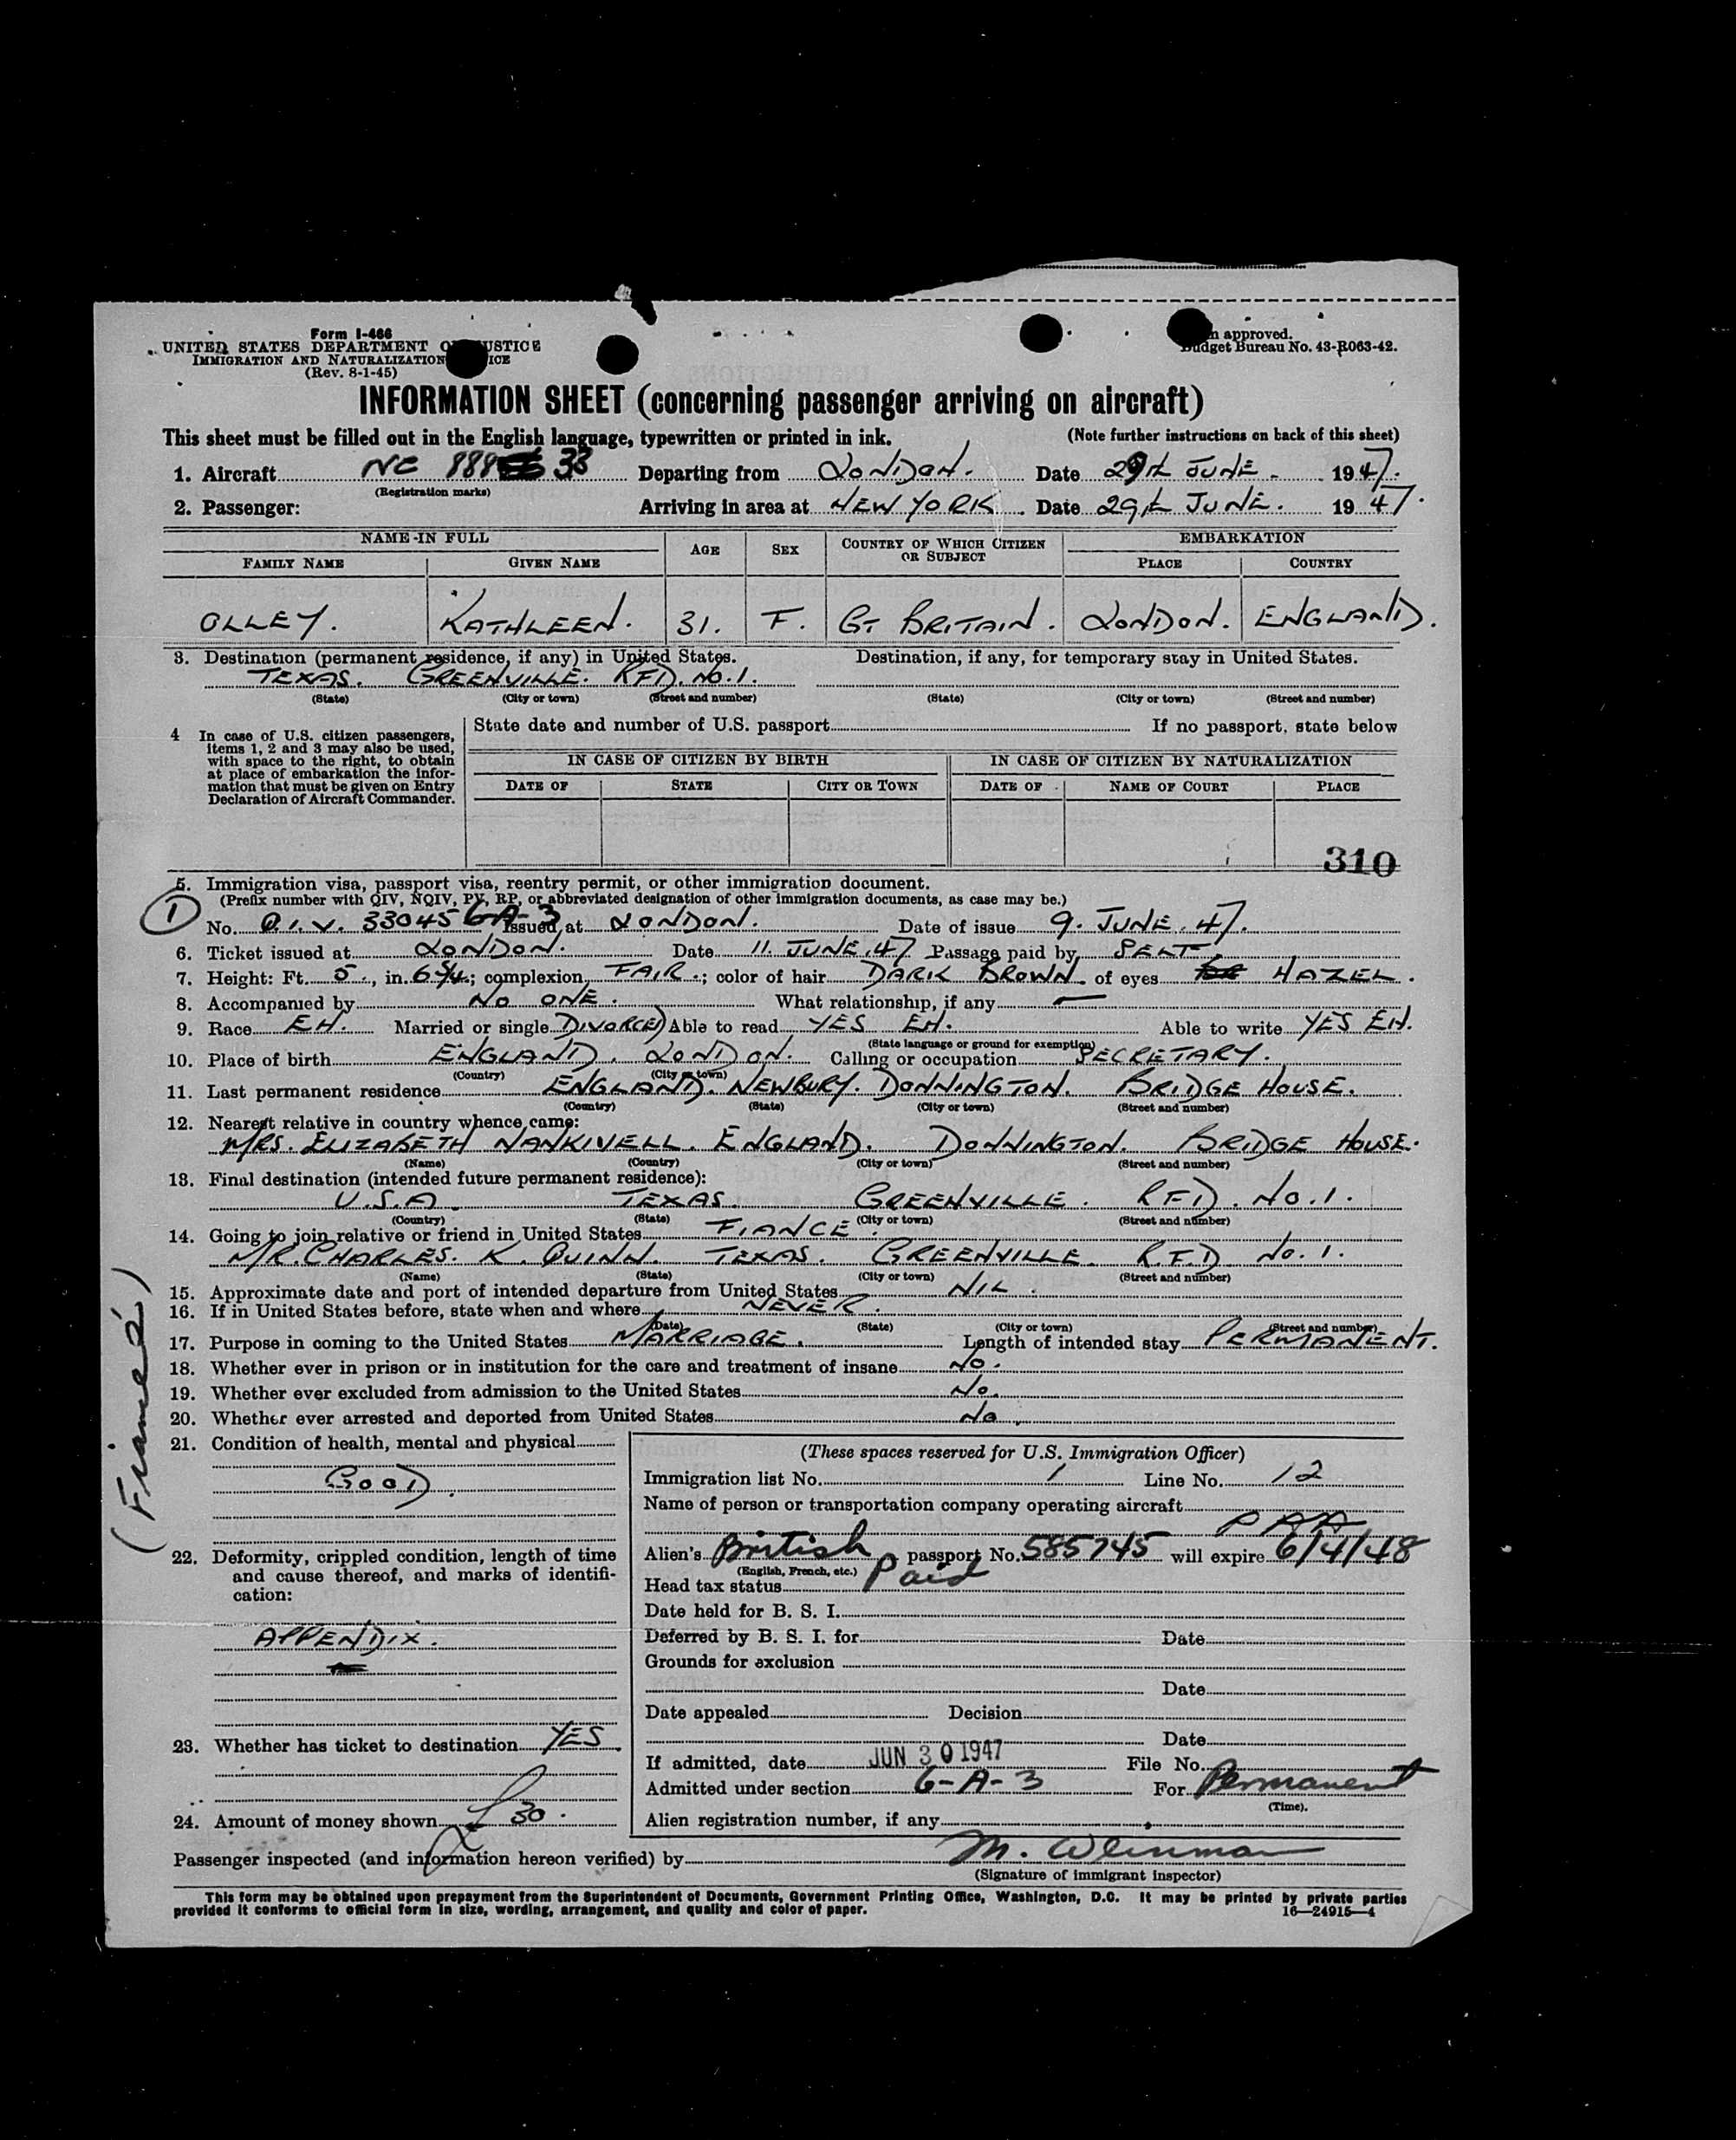 Form I-466
UNITED STATES DEPARTMENT OF JUSTICE
IMMIGRATION AND NATURALIZATION SERVICE
(Rev. 8-1-45)
approved.
Budget Bureau No. 43-R063-42.
INFORMATION SHEET (concerning passenger arriving on aircraft)
This sheet must be filled out in the English language, typewritten or printed in ink. (Note further instructions on back of this sheet)
1. Aircraft NC 888 33 Departing from LONDON. Date 29th JUNE. 1947.
(Registration marks)
2. Passenger: Arriving in area at NEW YORK. Date 29th JUNE. 1947.
NAME IN FULL AGE SEX COUNTRY OF WHICH CITIZEN OR SUBJECT EMBARKATION
FAMILY NAME GIVEN NAME PLACE COUNTRY
OLLEY. KATHLEEN. 31. F. GT BRITAIN. LONDON. ENGLAND.
3. Destination (permanent residence, if any) in United States. Destination, if any, for temporary stay in United States.
TEXAS. GREENVILLE. RFD. NO. 1.
(State) (City or town) (Street and number) (State) (City or town) (Street and number)
4 In case of U.S. citizen passengers, items 1, 2 and 3 may also be used, with space to the right, to obtain at place of embarkation the information that must be given on Entry Declaration of Aircraft Commander.
State date and number of U.S. passport If no passport, state below
IN CASE OF CITIZEN BY BIRTH IN CASE OF CITIZEN BY NATURALIZATION
DATE OF STATE CITY OR TOWN DATE OF NAME OF COURT PLACE
310
5. Immigration visa, passport visa, reentry permit, or other immigration document.
(Prefix number with QIV, NQIV, PV, RP, or abbreviated designation of other immigration documents, as case may be.)
1
No. Q.I.V. 33045 6-A-3 Issued at LONDON. Date of issue 9. JUNE. 47.
6. Ticket issued at LONDON. Date 11. JUNE. 47 Passage paid by SELF
7. Height: Ft. 5, in. 6 3/4; complexion FAIR.; color of hair DARK BROWN. of eyes HAZEL.
8. Accompanied by NO ONE. What relationship, if any —
9. Race EH. Married or single DIVORCED Able to read YES EH. Able to write YES EH.
(State language or ground for exemption)
10. Place of birth ENGLAND. LONDON. Calling or occupation SECRETARY.
(Country) (City or town)
11. Last permanent residence ENGLAND. NEWBURY. DONNINGTON. BRIDGE HOUSE.
(Country) (State) (City or town) (Street and number)
12. Nearest relative in country whence came:
MRS. ELIZABETH NANKIVELL. ENGLAND. DONNINGTON. BRIDGE HOUSE.
(Name) (Country) (City or town) (Street and number)
13. Final destination (intended future permanent residence):
U.S.A. TEXAS. GREENVILLE. RFD. NO. 1.
(Country) (State) (City or town) (Street and number)
14. Going to join relative or friend in United States FIANCE.
MR. CHARLES. K. QUINN. TEXAS. GREENVILLE. R.F.D. NO. 1.
(Name) (State) (City or town) (Street and number)
15. Approximate date and port of intended departure from United States NIL.
16. If in United States before, state when and where NEVER.
(Date) (State) (City or town) (Street and number)
17. Purpose in coming to the United States MARRIAGE. Length of intended stay PERMANENT.
18. Whether ever in prison or in institution for the care and treatment of insane No.
19. Whether ever excluded from admission to the United States No.
20. Whether ever arrested and deported from United States No.
(Fianceé)
21. Condition of health, mental and physical
GOOD.
22. Deformity, crippled condition, length of time and cause thereof, and marks of identification:
APPENDIX.
23. Whether has ticket to destination YES.
24. Amount of money shown £ 30.
(These spaces reserved for U.S. Immigration Officer)
Immigration list No. 1 Line No. 12
Name of person or transportation company operating aircraft
PAA
Alien's British passport No. 585745 will expire 6/4/48
(English, French, etc.)
Head tax status Paid
Date held for B. S. I.
Deferred by B. S. I. for Date
Grounds for exclusion
Date
Date appealed Decision
Date
If admitted, date JUN 30 1947 File No.
Admitted under section 6-A-3 For Permanent
(Time).
Alien registration number, if any
Passenger inspected (and information hereon verified) by M. Weinman
(Signature of immigrant inspector)
This form may be obtained upon prepayment from the Superintendent of Documents, Government Printing Office, Washington, D.C. It may be printed by private parties
provided it conforms to official form in size, wording, arrangement, and quality and color of paper. 16—24915-4